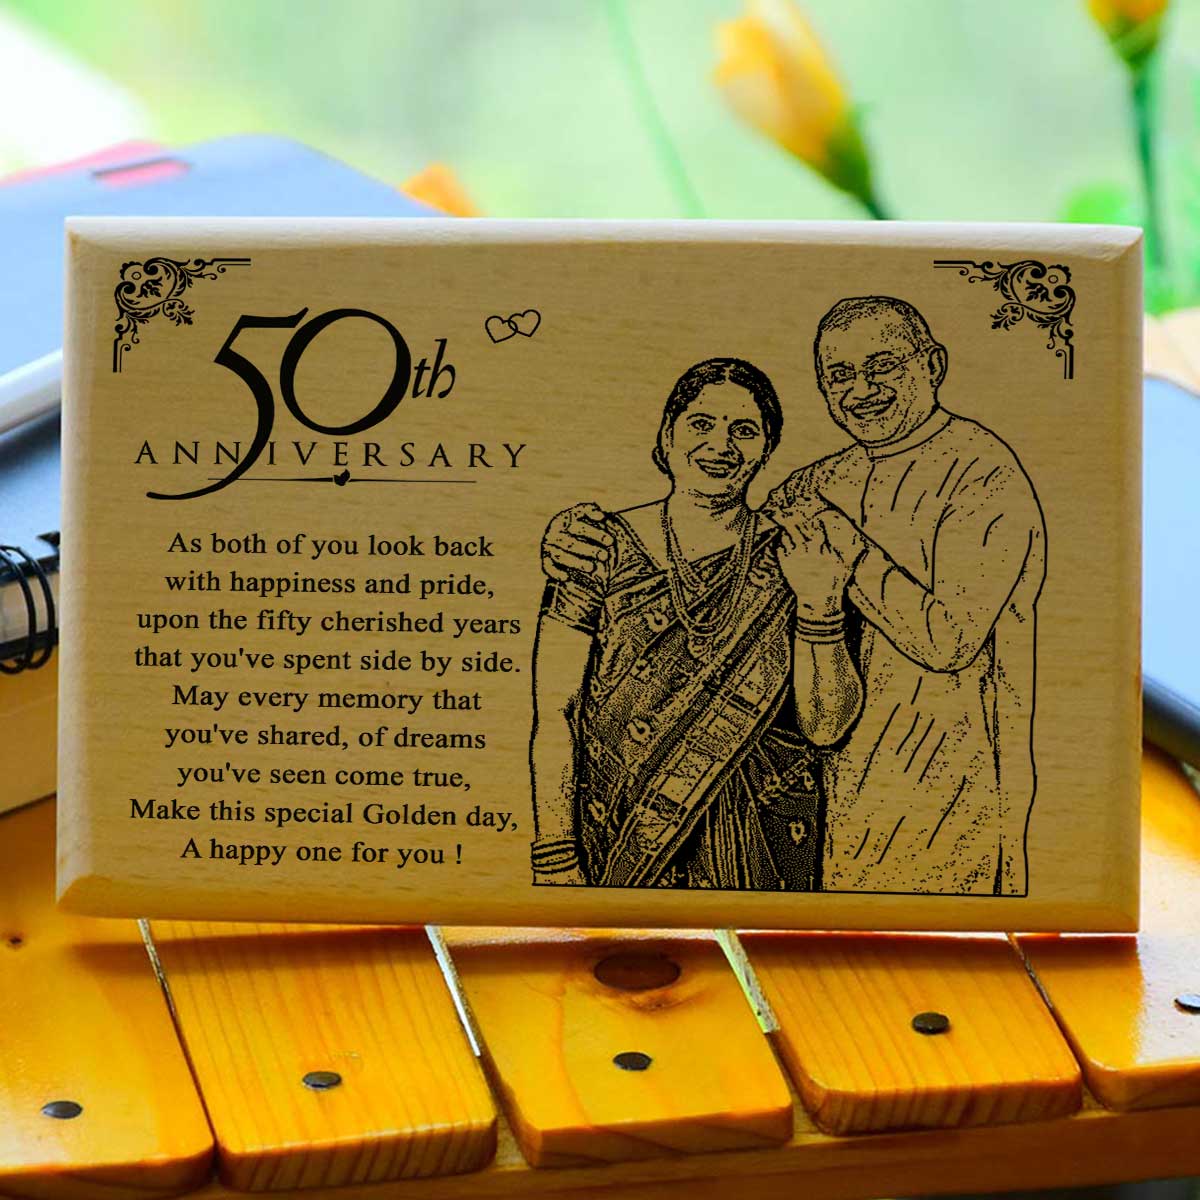 50th
ANNIVERSARY
As both of you look back
with happiness and pride,
upon the fifty cherished years
that you've spent side by side.
May every memory that
you've shared, of dreams
you've seen come true,
Make this special Golden day,
A happy one for you !